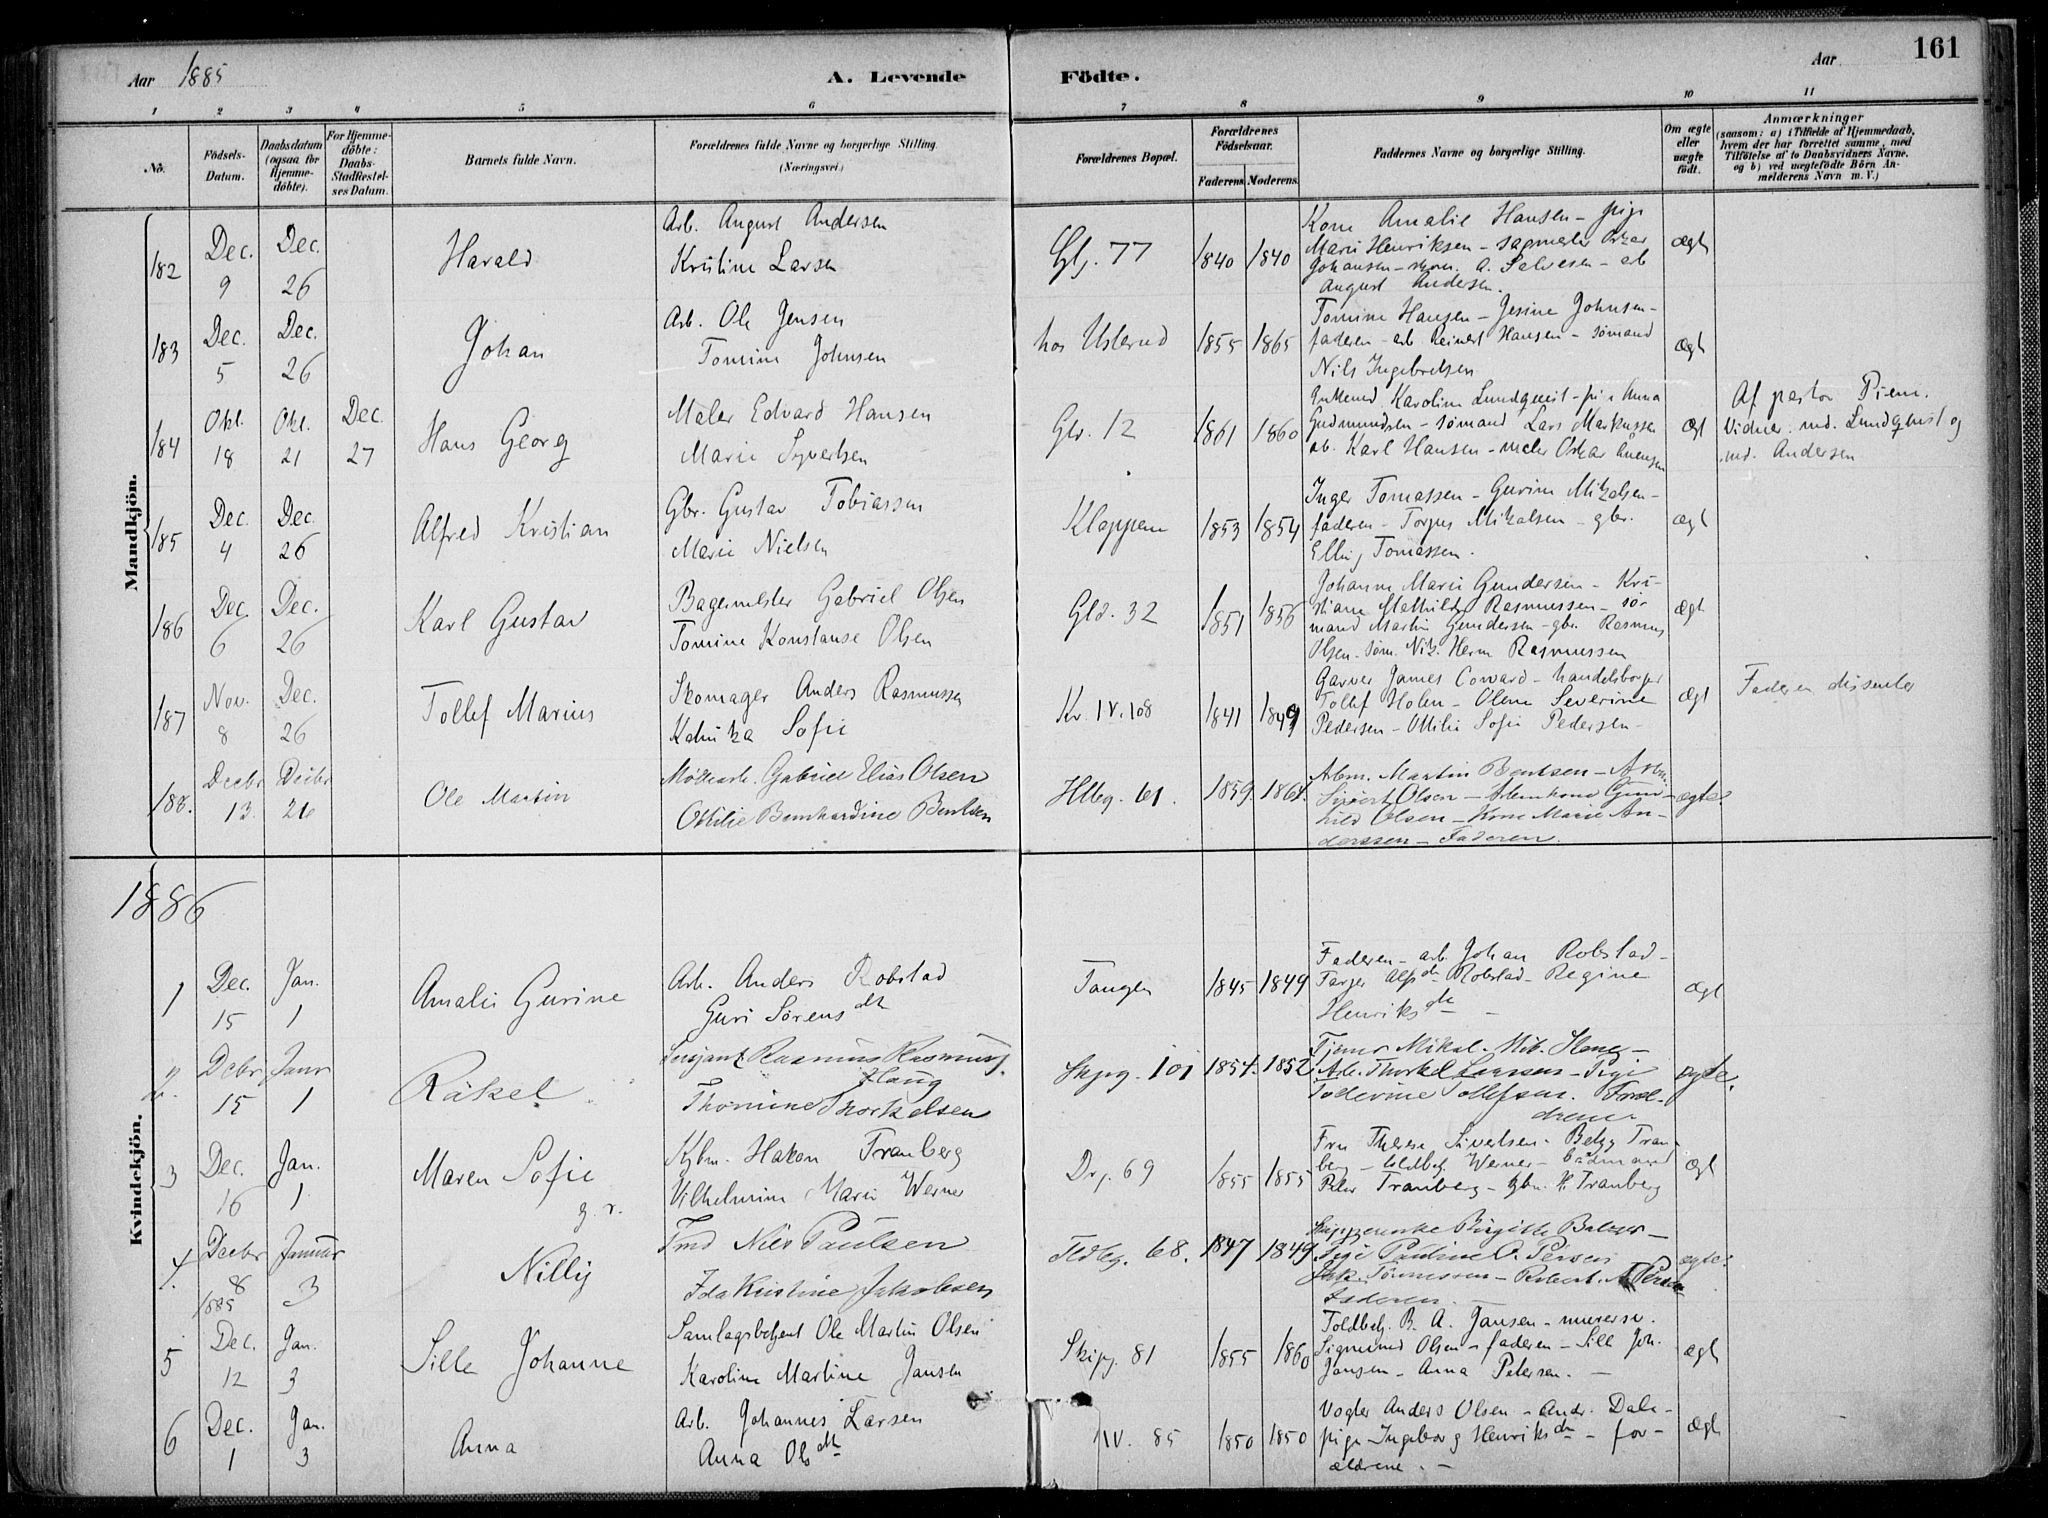 Aar 1885
A. Levende
Födte.
Aar
161
1 2 3 4 5 6 7 8 9 10 11
No.
Födsels-
Datum.
Daabsdatum
(ogsaa for
Hjemme-
döbte).
For Hjemme-
döbte:
Daabs-
Stadfæstel-
ses Datum.
Barnets fulde Navn.
Forældrenes fulde Navne og borgerlige Stilling.
(Næringsvei.)
Forældrenes Bopæl.
Forældrenes
Födselsaar.
Faderens. Moderens.
Faddernes Navne og borgerlige Stilling.
Om ægte
eller
uægte
födt.
Anmærkninger
(saasom: a) i Tilfælde af Hjemmedaab,
hvem der har forrettet samme, med
Tilföielse af to Daabsvidners Navne,
og b) ved uægtefödte Börn An-
melderens Navn m. V.)
Mandkjön.
182
Dec.
9
Dec.
26
Harald
Arb. August Andersen
Kristine Larsen
77
1840 1840
Kone Amalie Hansen - pige
Marie Henriksen - sagmester Oskar
Johansen - skom. A. Salvesen - arb
August Andersen.
ægt
183
Dec.
5
Dec.
26
Johan
Arb. Ole Jensen
Tomine Johnsen
hos Usterud
1855 1865
Tomine Hansen - Jesine Johnsen -
faderen - arb Reinert Hansen - sømand
Nils Ingebretsen
ægt
184
Okt.
18
Okt.
21
Dec.
27
Hans Georg
Maler Edvard Hansen
Marie Syvertsen
Glv. 12
1861 1860
Karoline Lundqvist - pige Anna
Gudmundsen - sømand Lars Markussen
arb. Karl Hansen - maler Oskar
ægt
Af pastor
Vidner. md. Lundqvist og
md. Andersen
185
Dec.
4
Dec.
26
Alfred Kristian
Gbr. Gustav Tobiassen
Marie Nielsen
Kloppene
1853 1854
Inger Tomassen - Gurine Mikalsen -
faderen - Torjus Mikalsen - gbr.
Elling Tomassen.
ægt
186
Dec.
6
Dec.
26
Karl Gustav
Bagermester Gabriel Olsen
Tomine Konstanse Olsen
Gld. 32
1851 1856
Johanne Marie Gundersen - Kri-
stiane Mathilde Rasmussen - sø-
mand Martin Gundersen - gbr. Rasmus
Olsen - søm. Nik. Herm Rasmussen
ægt
187
Nov.
8
Dec.
26
Tollef Marius
Skomager Anders Rasmussen
Sofie
Kv. IV. 108
1841 1849
Garver James Coward - handelsborger
Tollef Holen - Olene Severine
Pedersen - Ottilie Sofie Pedersen -
ægt
Faderen dissenter
188.
Decbr
13.
Decbr
26
Ole Martin
Gabriel Elias Olsen
Othilie Bernhardine Bentsen
61.
1859. 1864.
Arbm. Martin Bentsen - Arbm.
Sivert Olsen - Arbmkone Gun-
hild Olsen - Kone Marie An-
derssen - Faderen.
ægte
1886
Kvindekjön.
1
Dec.
15
Jan.
1
Amalie Gurine
Arb. Anders Robstad
Guri Sørensdtr
Tangen
1845 1849
Faderen - arb. Johan Robstad -
Robstad - Regine
Henriksdtr -
ægt
2.
Debr
15
Janr
1
Rakel
Sersjant Rasmus Rasmuss.
Haug
Thomine Thorkelsen
Skipg. 101
1854. 1852
Arb. Thorkel Larsen - Pige
Tollefsen. Foræl-
drene -
ægte.
3
Dec.
16
Jan.
1
Maren Sofie
Kjbm. Hakon Tranberg
Vilhelmine Marie Werner
Drg. 69
1855 1855
Fru Therese Sivertsen - Betzy Tran-
berg - toldbetj. Werner - bådmand
Peter Tranberg - kjbm. H. Tranberg
ægt
4.
Decbr
8
1885
Januar
3
g. v.
Nilly
Nils Paulsen
Ida Kristine Jakobsen
68.
1847 1849
Skipperenke Birgitte Balzer -
Pige Pauline
Tønnessen - Robert
Faderen.
ægte.
5
Dec.
12
Jan.
3
Sille Johanne
Samlagsbetjent Ole Martin Olsen
Karoline Martine Jansen
Skipg. 81
1855 1860
Toldbetj. B. A. Jansen - murersv.
Sigmund Olsen - faderen - Sille Joh.
Jansen - Anna Petersen. -
ægt
6
Dec.
1
Jan.
3
Anna
Arb. Johannes Larsen
Anna Olsdtr
IV. 85
1850 1850
Vogter Anders Olsen - Andr. Dale -
pige Ingeborg Henriksdtr - for-
ældrene. -
ægt